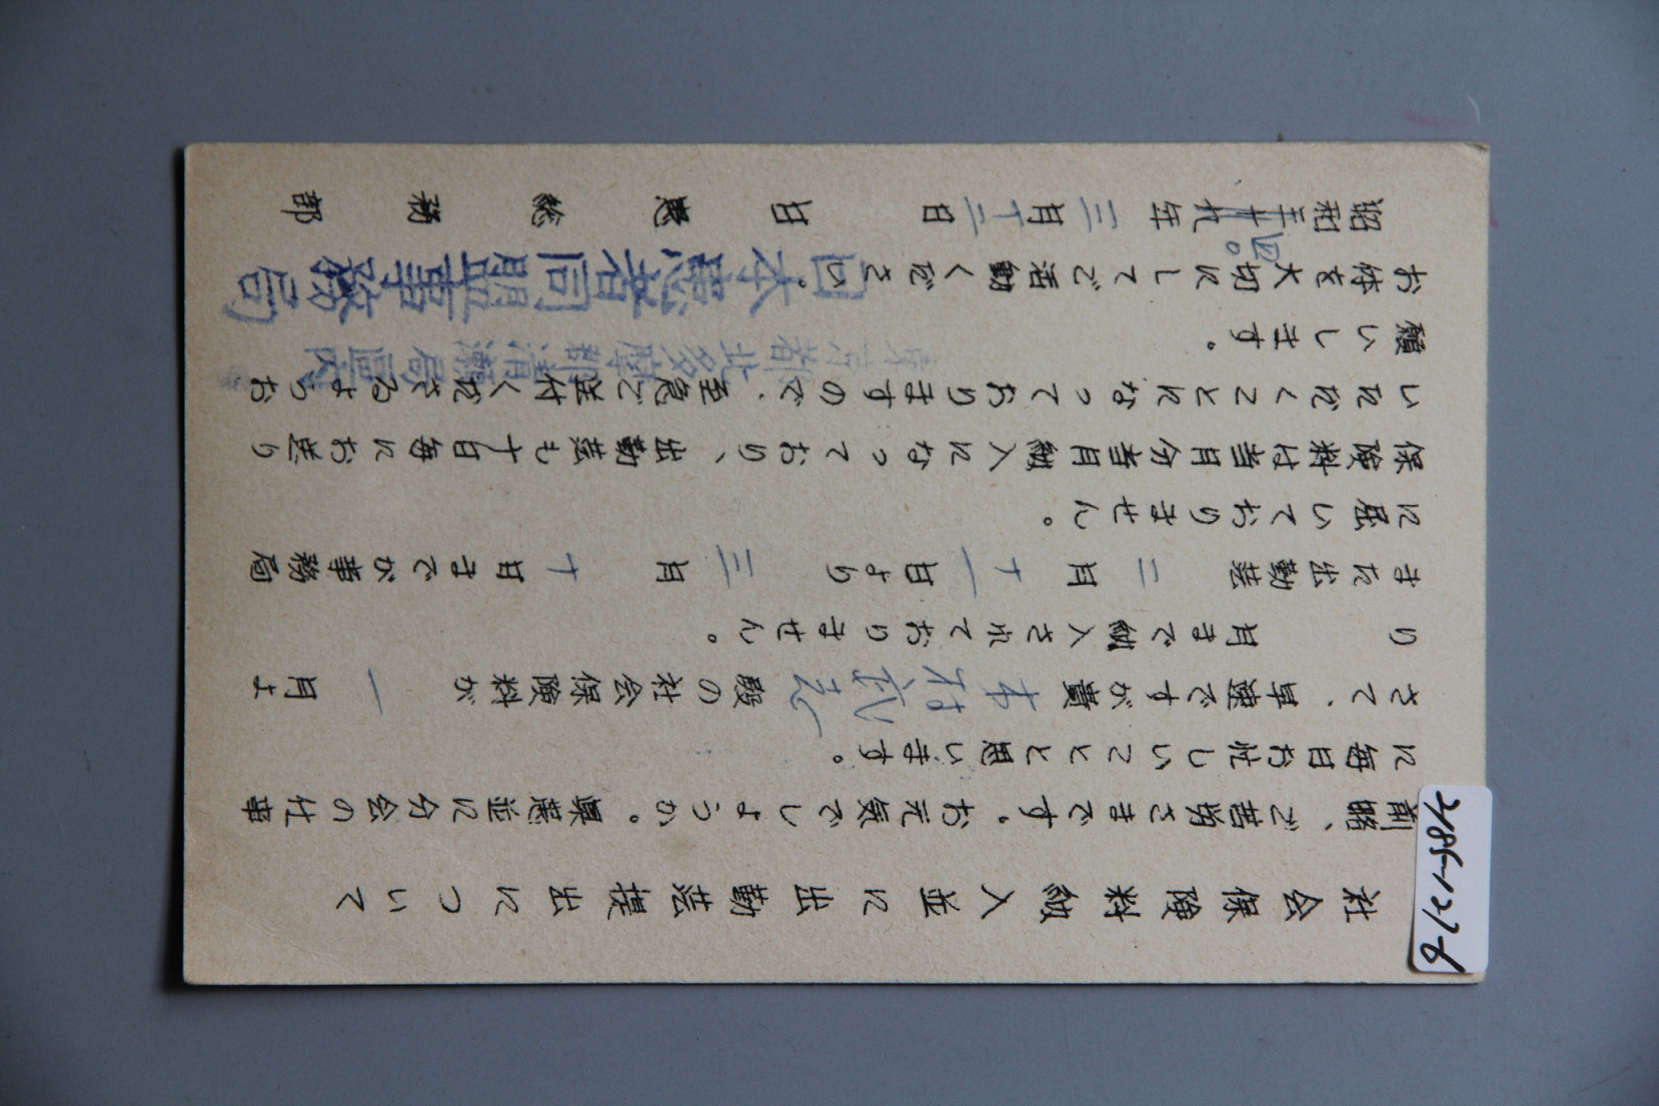 社会保険料納入並に出勤簿提出について
前略、ご苦労さまです。お元気でしょうか。県患並に分会の仕事
に毎日お忙しいことと思います。
さて、早速ですが貴 の社会保険料が 一 月よ
り 月まで納入されておりません。
また出勤簿 二 月 十一 日より 三 月 十 日までが事務局
に届いておりません。
保険料は当月分当月納入になっており、出勤簿も十日毎にお送り
いただくことになっておりますので、至急ご送付くださるようお
願いします。
お体を大切にしてご活動ください。
昭和三十九年 三月十二日 日患総務部
四。
東京都北多摩郡清瀬局區内
日本患者同盟事務局
2185-121-6